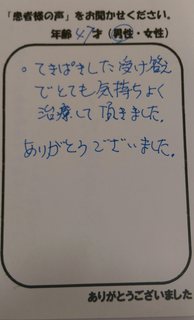 「患者様の声」をお聞かせください。
年齢 47才 (男性・女性)
。てきぱきした受け答え
でとても気持ちよく
治療して頂きました。
ありがとうございました。
ありがとうございました